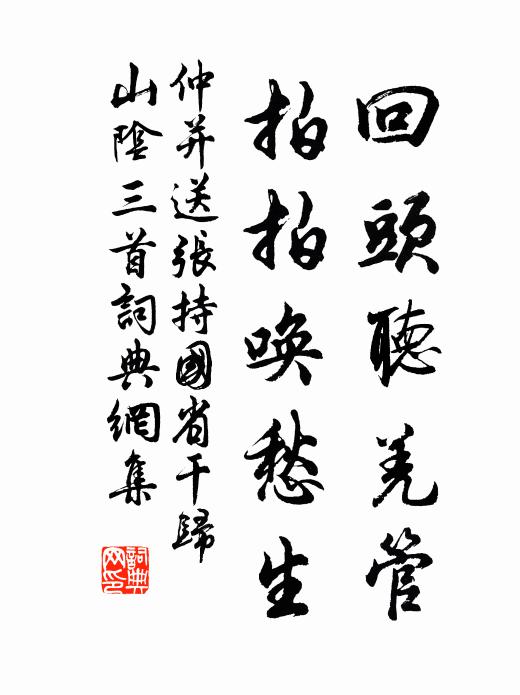 回頭聽羌管
拍拍喚愁生
仲并送張持國省干歸
山陰三首詞典網集
詞典
网印